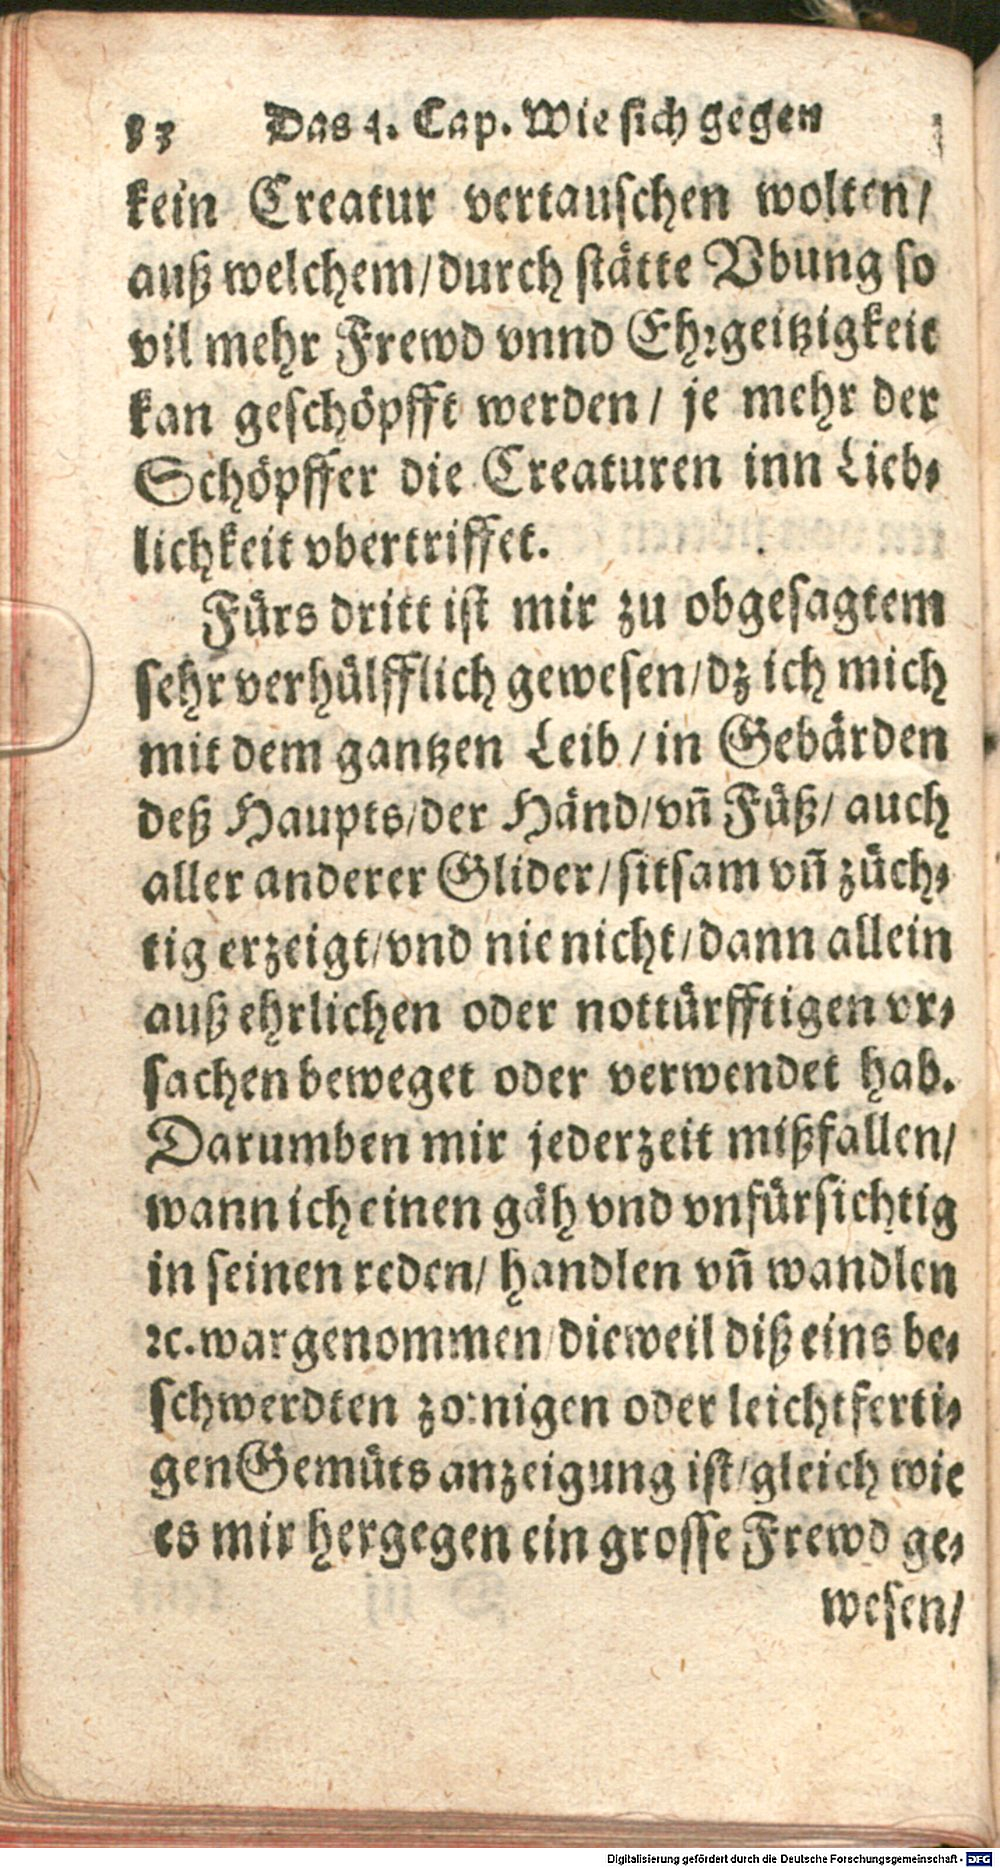 83 Das 4. Cap. Wie sich gegen
kein Creatur vertauschen wolten/
auß welchem/durch stätte Vbung so
vil mehr Frewd vnnd Ehrgeitzigkeit
kan geschöpfft werden/ je mehr der
Schöpffer die Creaturen inn Lieb⸗
lichkeit vbertriffet.
Fürs dritt ist mir zu obgesagtem
sehr verhülfflich gewesen/dz ich mich
mit dem gantzen Leib/in Gebärden
deß Haupts/der Händ/vñ Füß/ auch
aller anderer Glider/sitsam vñ züch⸗
tig erzeigt/vnd nie nicht/dann allein
auß ehrlichen oder nottürfftigen vr⸗
sachen beweget oder verwendet hab.
Darumben mir jederzeit mißfallen/
wann ich einen gäh vnd vnfürsichtig
in seinen reden/ handlen vñ wandlen
ꝛc. wargenommen/dieweil diß eins be⸗
schwerdten zornigen oder leichtferti⸗
gen Gemüts anzeigung ist/gleich wie
es mir hergegen ein grosse Frewd ge⸗
wesen/
Digitalisierung gefördert durch die Deutsche Forschungsgemeinschaft - DFG